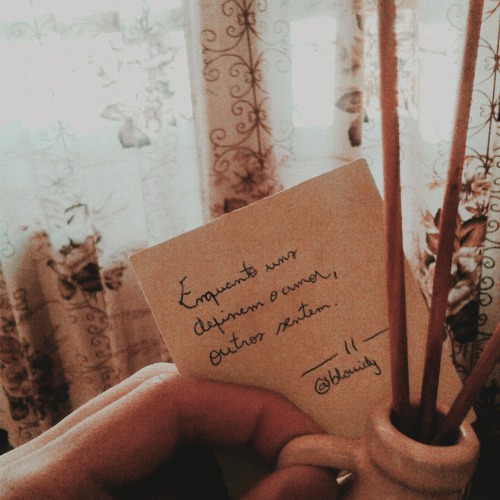 Enquanto uns
definem o amor,
outros sentem.
— " —
@blouidy